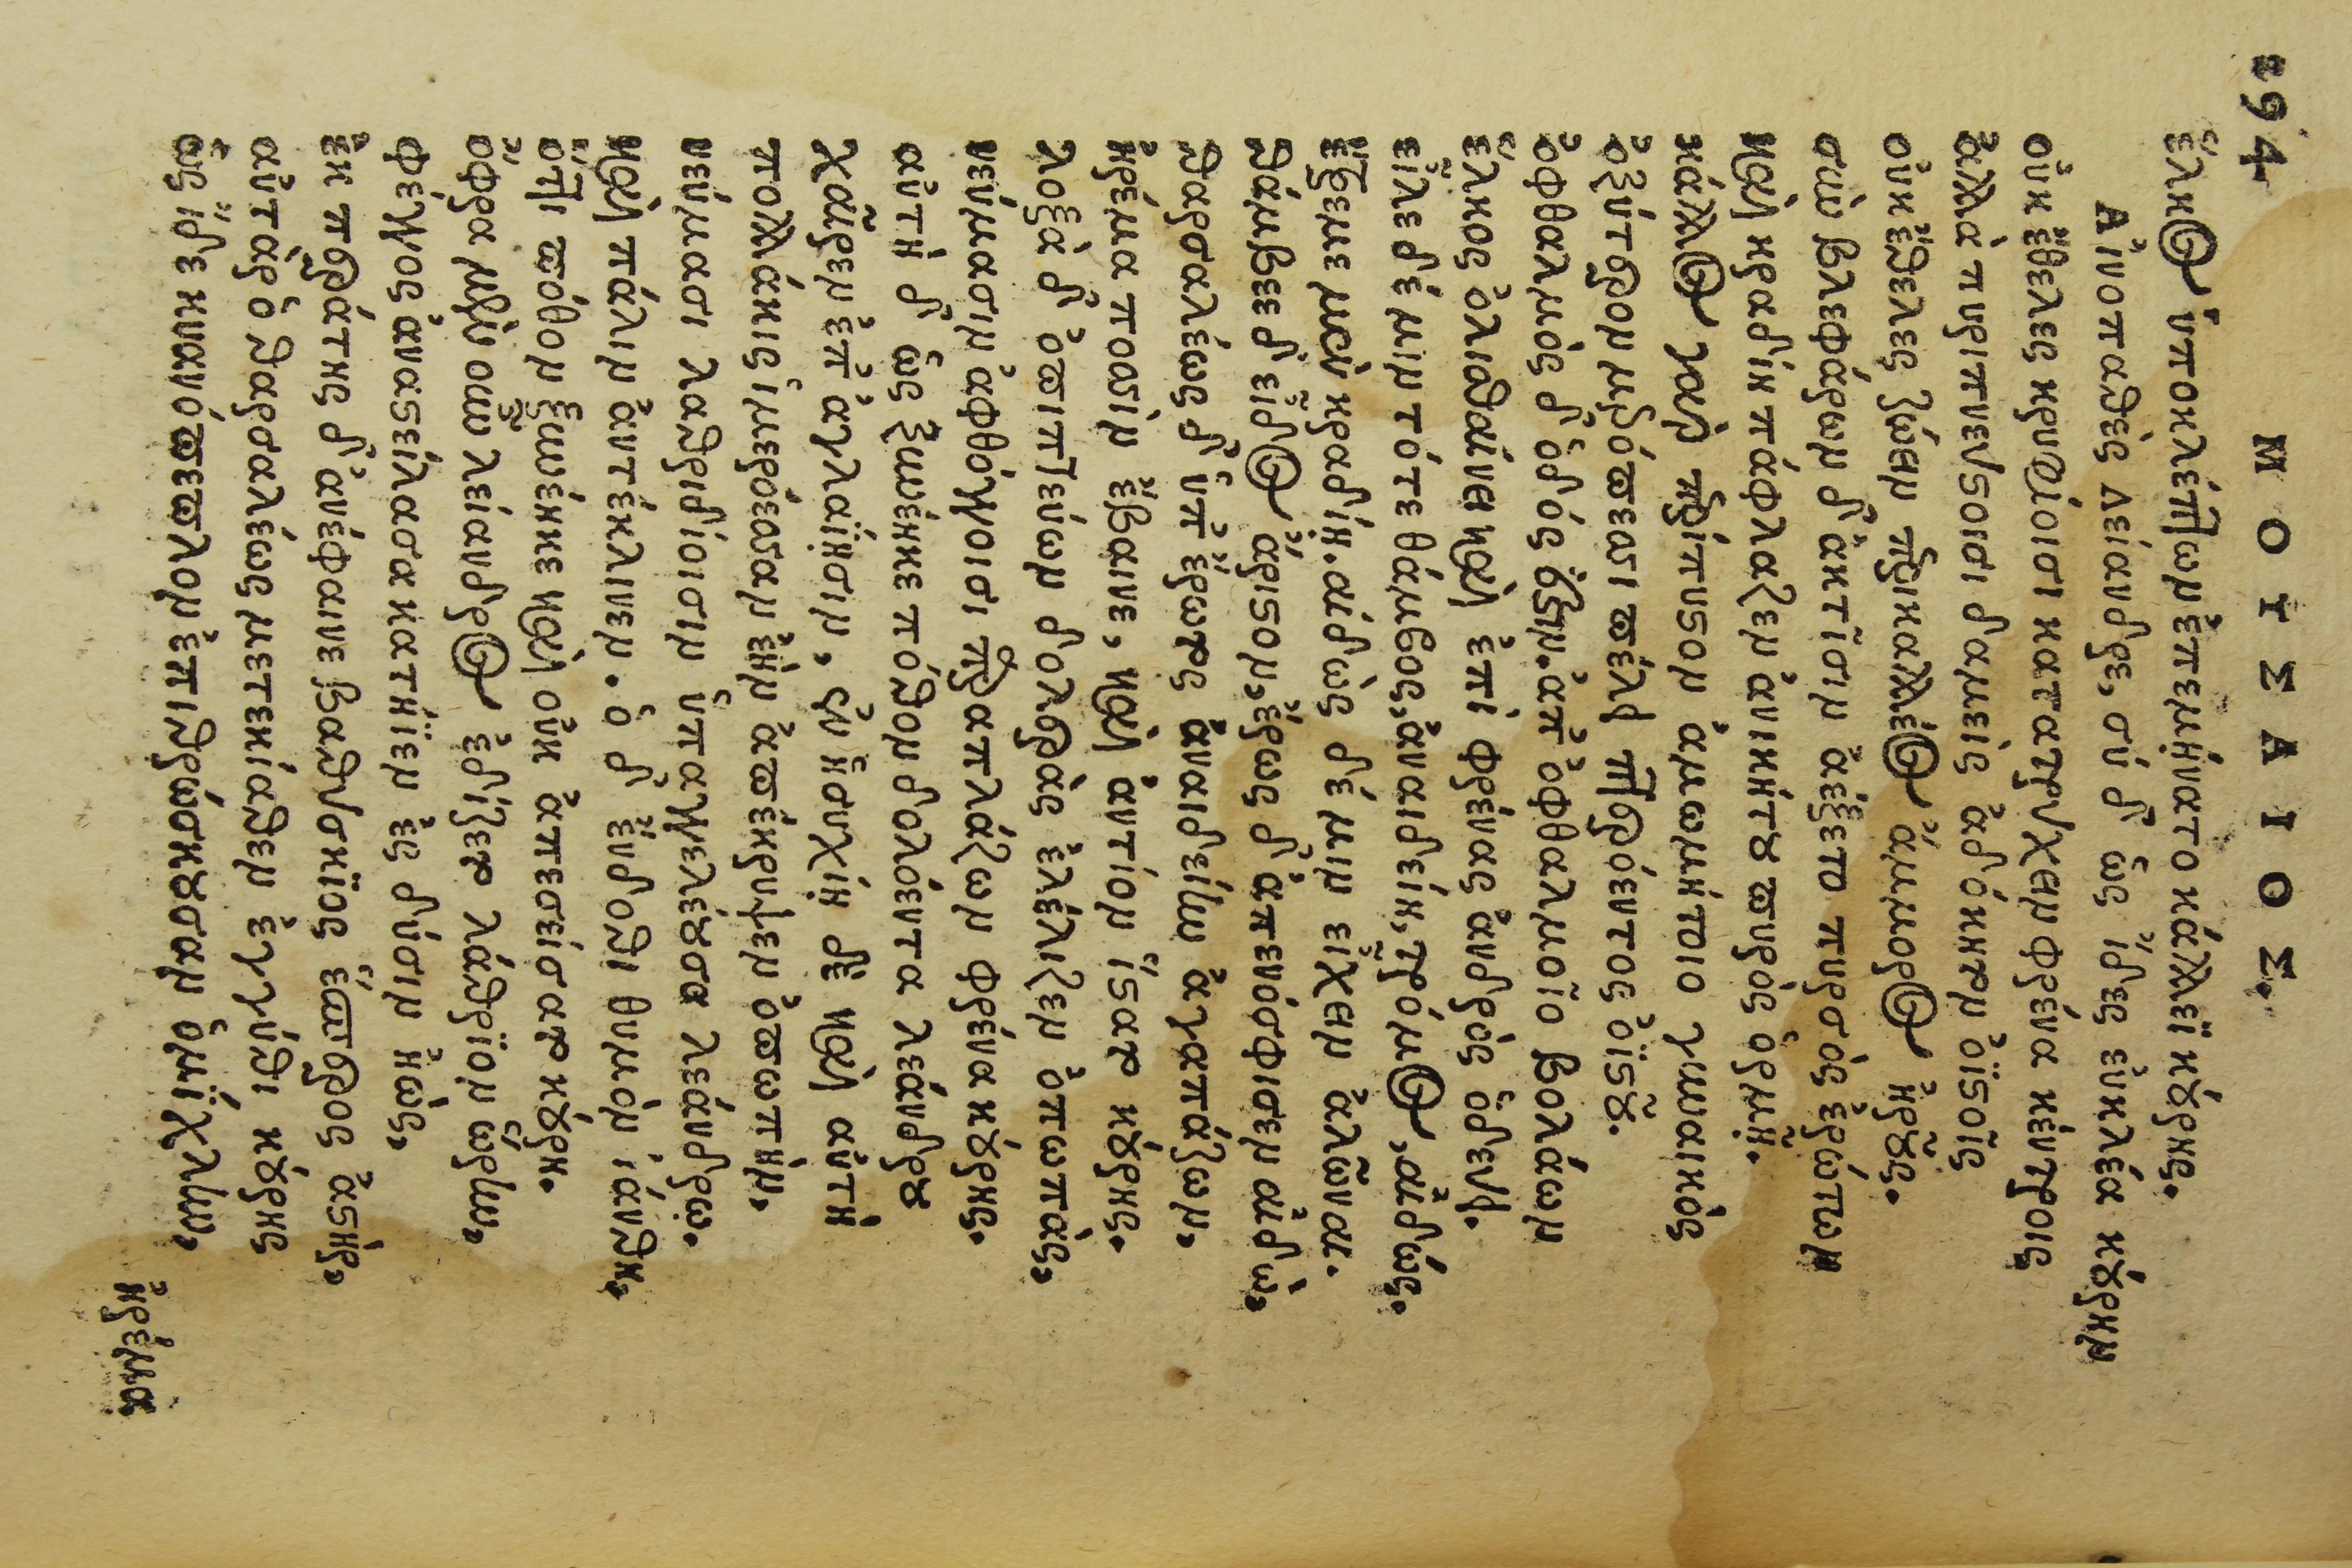 294 ΜΟΥΣΑΙΟΣ.
ἕλκος ὑποκλέπτων ἐπεμήνατο κάλλεϊ κούρης.
Αἰνοπαθὲς Λείανδρε, σὺ δ᾽ ὡς ἴδες εὐκλέα κούρην
οὐκ ἔθελες κρυφίοισι κατατρύχειν φρένα κέντροις
ἀλλὰ πυριπνεύστοισι δαμεὶς ἀδόκητον ὀϊστοῖς
οὐκ ἔθελες ζώειν περικαλλέος ἄμμορος ἡροῦς.
σὺν βλεφάρων δ᾽ ἀκτῖσιν ἀέξετο πυρσὸς ἐρώτων
καὶ κραδίη πάφλαζεν ἀνικήτου πυρὸς ὁρμῇ.
κάλλος γὰρ περίπυστον ἀμωμήτοιο γυναικὸς
ὀξύτερον μερόπεσσι πέλει πτερόεντος ὀϊστοῦ.
ὀφθαλμὸς δ᾽ ὁδός ἐστιν. ἀπ᾽ ὀφθαλμοῖο βολάων
ἕλκος ὀλισθαίνει καὶ ἐπὶ φρένας ἀνδρὸς ὁδεύει.
εἷλε δέ μιν τότε θάμβος, ἀναιδείη, τρόμος, αἰδώς.
ἔτρεμε μὲν κραδίη. αἰδὼς δέ μιν εἶχεν ἁλῶναι.
θάμβεε δ᾽ εἶδος ἄριστον, ἔρως δ᾽ ἀπενόσφισεν αἰδῶ,
θαρσαλέως δ᾽ ὑπ᾽ ἔρωτος ἀναιδείην ἀγαπάζων.
ἠρέμα ποσσὶν ἔβαινε, καὶ ἀντίον ἵστατο κούρης.
λοξὰ δ᾽ ὀπιπτεύων δολερὰς ἐλέλιζεν ὀπωπὰς,
νεύμασιν ἀφθόγγοισι παραπλάζων φρένα κούρης.
αὐτὴ δ᾽ ὡς ξυνέηκε πόθον δολόεντα λεάνδρου
χαῖρεν ἐπ᾽ ἀγλαΐῃσιν, ἐν ἡσυχίῃ δὲ καὶ αὐτὴ
πολλάκις ἱμερόεσσαν ἑὴν ἀπέκρυψεν ὀπωπὴν.
νεύμασι λαθριδίοισιν ὑπαγγελέουσα λεάνδρῳ.
καὶ πάλιν ἀντέκλινεν. ὁ δ᾽ ἔνδοθι θυμὸν ἰάνθη,
ὅττι πόθον ξυνέηκε καὶ οὐκ ἀπεσείσατο κούρη.
ὄφρα μὲν οὖν λείανδρος ἐδίζετο λάθριον ὥρην,
φέγγος ἀναστείλασα κατήϊεν ἐς δύσιν ἠὼς,
ἐκ περάτης δ᾽ ἀνέφαινε βαθύσκιος ἕσπερος ἀστὴρ,
αὐτὰρ ὁ θαρσαλέως μετεκίαθεν ἐγγύθι κούρης
ὡς ἴδε κυανόπεπλον ἐπιθρώσκουσαν ὀμίχλην,
ἠρέμα